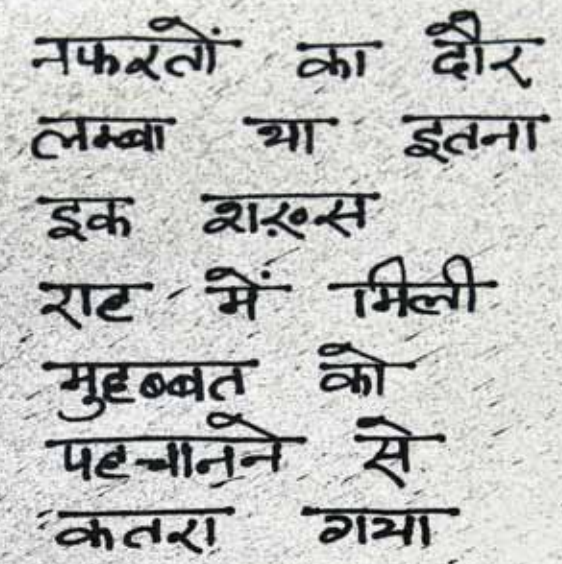 नफरतों का दौर
लम्बा था इतना
इक शख़्स
राह में मिली
मुहब्बत को
पहचानने से
कतरा गया